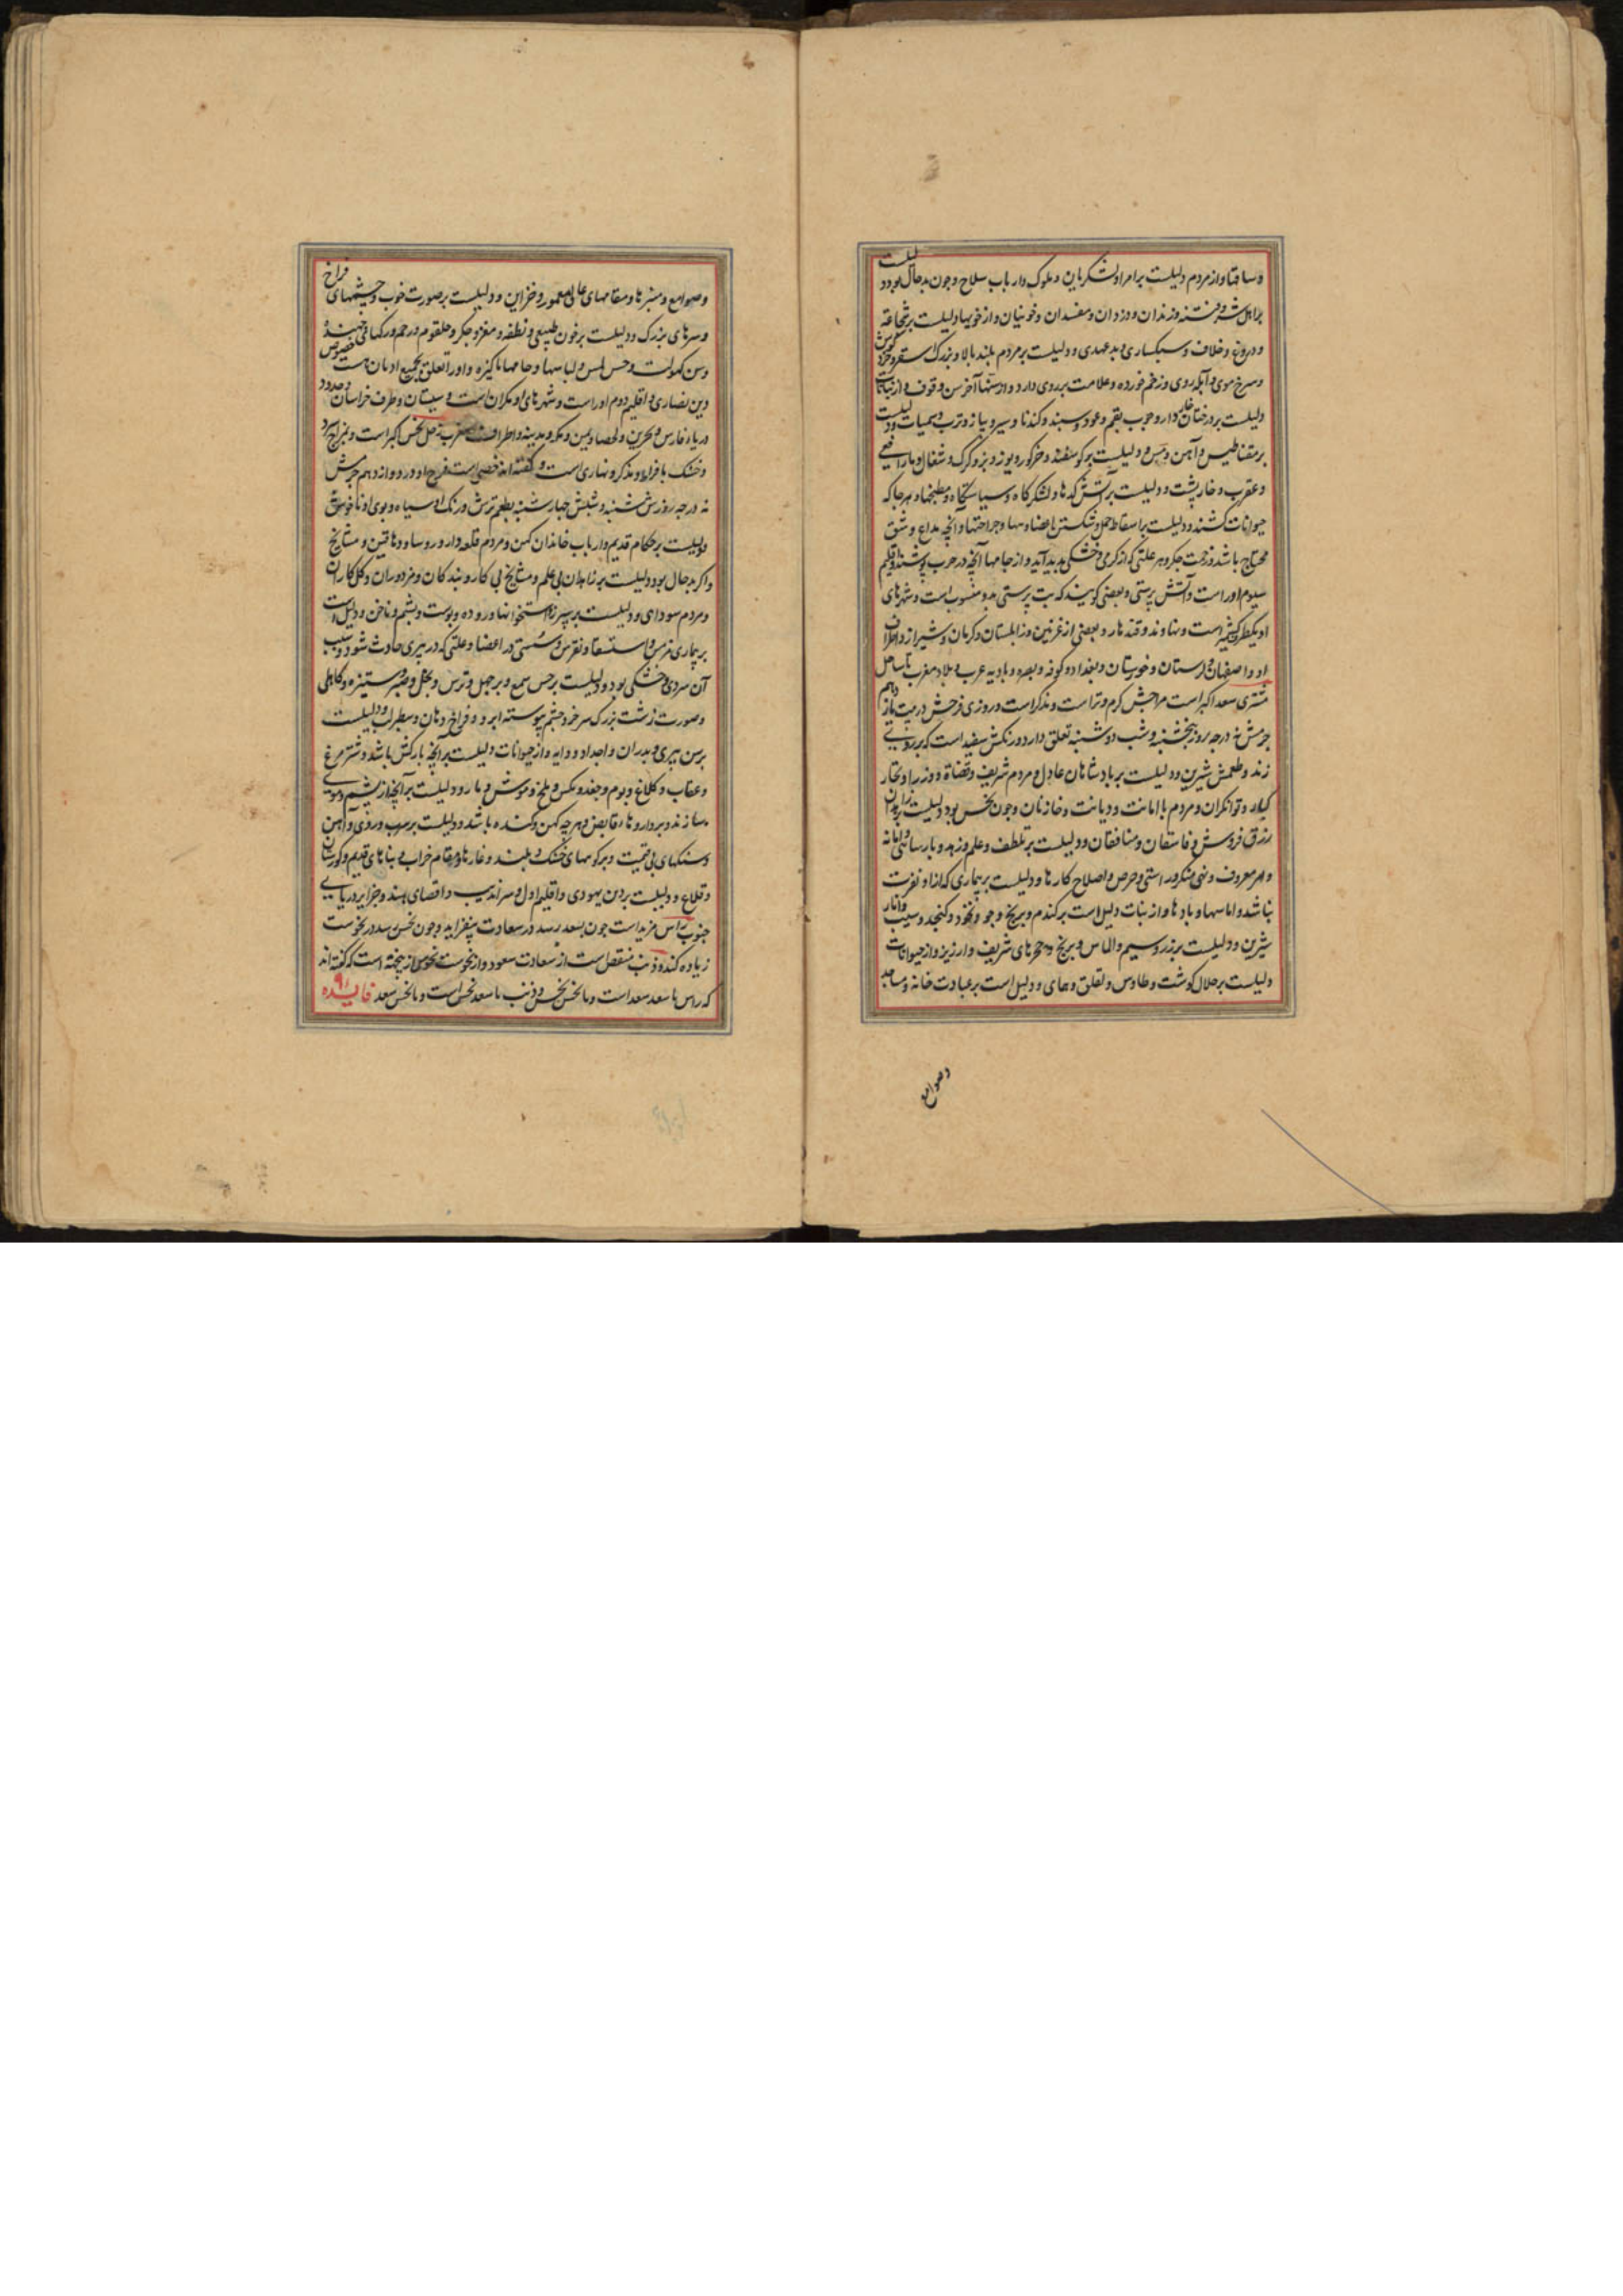 و ساقها و از مردم دلیلست بر امرا و لشکریان و ملوک و ارباب سلاح و چون بدحال بود دلیلست
بر اهل شر و فتنه و رندان و دزدان و مفسدان و خونیان و از خویها دلیلست بر شجاعة
و دروغ و خلاف و سبکساری و بدعهدی و دلیلست بر مردم بلند بالا و بزرگ سر و خرد گوش
و سرخ موی و آبله روی و زخم خورده و علامت بر روی دارد و از سنها آخر سن وقوف و از نباتات
دلیلست بر درختان خار دار و چوب بقم و عود و سپند و کندنا و سیر و پیاز و ترب و سمیات و دلیلست
بر مقناطیس و آهن و مس و دلیلست بر کوسفند و خر کور و یوز و بز و کرک و شغال و مار افعی
و عقرب و خارپشت و دلیلست بر آتش کدها و لشکرکاه و سیاستگاه و مطبخها و هر جا که
حیوانات کشند و دلیلست بر اسقاط حمل و شکستن اعضا و جراحتها و آنچه بداغ و شق
محتاج باشد و زحمت جکر و هر علتی که از کرمی و خشکی پدید آید و از جامها آنچه در حرب پوشند و اقلیم
سیوم او راست و آتش پرستی و بعضی کویند که بت پرستی بدو منسوب است و شهرهای
او یکطرف است و نهاوند و قندهار و بعضی از غزنین و زابلستان و کرمان و شیراز و اطراف
او و اصفهان و لرستان و خوزستان و بغداد و کوفه و بصره و بادیه عرب و بلاد مغرب تا ساحل
مشتری سعد اکبر است مزاجش کرم و تر است و مذکر است و روزی فرحش در بیت یازدهم
جرمش نه درجه روز پنجشنبه و شب دوشنبه تعلق دارد و رنکش سفید است که بزردی
زند و طعمش شیرین و دلیلست بر پادشاهان عادل و مردم شریف و قضاة و وزرا و تجار
کبار و توانکران و مردم با امانت و دیانت و خازنان و چون نحس بود دلیلست بر زاهدان
زرق فروش و فاسقان و منافقان و دلیلست بر تلطف و علم و زهد و پارسائی و امانة
و امر معروف و نهی منکر و راستی و حرص و اصلاح کارها و دلیلست بر بیماری که از او نفرت
نباشد و اماسها و بادها و از نبات دلیل است بر کندم و برنج و جو و نخود و کنجد و سیب و انار
شیرین و دلیلست بر زر و سیم و الماس و برنج و حجرهای شریف و ارزیز و از حیوانات
دلیلست بر حلال کوشت و طاوس و تعلق و همای و دلیل است بر عبادت خانه و مساجد
و صوامع
و صوامع و منبرها و مقامهای عالی معمور و خزاین و دلیلست بر صورت خوب و چشمهای فراخ
و سرهای بزرک و دلیلست بر خون طبیعی و نطفه و مغز و جکر و حلقوم و رحم و رکهای جهنده
و سن کهولت و حس لمس و لباسها و جامهاء پاکیزه و او را تعلق بجمیع ادیان هست خصوص
دین نصاری و اقلیم دوم او راست و شهرهای او مکران است و سیستان و طرف خراسان و حدود
دریاء فارس و بحرین و لحصا و یمن و مکه و مدینه و اطراف مغرب زحل نحس اکبر است و بمزاج سرد
و خشک بافراط و مذکر و نهاری است و گفته اند خصی است فرح او در دوازدهم جرمش
نه درجه روزش شنبه و شبش چهارشنبه بطعم ترش و رنک او سیاه و بوی او ناخوش
دلیلست بر حکام قدیم و ارباب خاندان کهن و مردم قلعه دار و روسا و دهاقین و مشایخ
و اکر بدحال بود دلیلست بر زاهدان بی علم و مشایخ بی کار و بندکان و مزدوران و کل کاران
و مردم سودای و دلیلست بر سپرز و استخوانها و روده و پوست و پشم و ناخن و دلیل است
بر بیماری مزمن و استسقا و نقرس و سستی در اعضا و علتی که در پیری حادث شود و سبب
آن سردی و خشکی بود و دلیلست بر حس سمع و بر جهل و ترس و بخل و صبر و ستیزه و کاهلی
و صورت زشت بزرک سر خرد چشم پیوسته ابرو و فراخ دهان و سطبر لب و دلیلست
بر سن پیری و پدران و اجداد و دایه و از حیوانات دلیلست بر آنچه بارکش باشد و شتر مرغ
و عقاب و کلاغ و بوم و جغد و مکس و ملخ و موش و مار و دلیلست بر آنچه از پشم و موی
سازند و بر داروهاء قابض و هر چه کهن و کنده باشد و دلیلست بر سرب و روی و آهن
و سنکهای بی قیمت و بر کوههای خشک و بلند و غارها و مقام خراب و بناهای قدیم و کورستان
و قلاع و دلیلست بر دین یهودی و اقلیم اول و سراندیب و اقصای هند و جزایر دریای
جنوب راس مزید است چون بسعد رسد در سعادت بیفزاید و چون نحس رسد در نحوست
زیاده کند و ذنب منقصل است از سعادت سعود و از نحوست نحوس از پنجته است که گفته اند
که راس با سعد سعد است و با نحس نحس و ذنب با سعد نحس است و با نحس سعد فایده